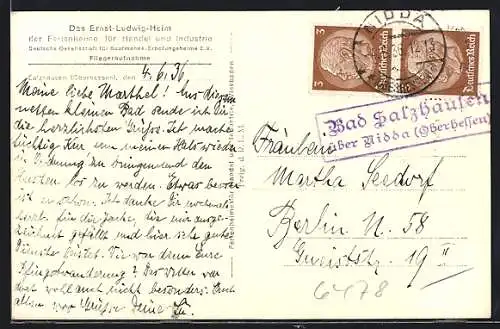 Das Ernst-Ludwig-Heim
der Ferienheime für Handel und Industrie
Deutsche Gesellschaft für Kaufmanns-Erholungsheime E.V.
Fliegeraufnahme
Salzhausen (Oberhessen), den
4.6.36,
Meine liebe Marthel! Aus diesem
netten kleinen Bad sende ich Dir
die herzlichsten Grüße. Ich mache
tüchtig Kur um meinen Hals wieder
in Ordnung zu bringen und den
Husten los zu werden. Etwas besser
ist es schon. Ich danke Dir nochmals
für die Jacke, die mir ausge-
zeichnet gefällt und hier sehr gute
Dienste leistet. Wie war Eure
Pfingstwanderung? Das Wetter war
dort wohl auch nicht besonders.
Grüßen Deine
NIDDA
3
Deutsches Reich
Deutsches Reich
3
Bad Salzhausen
über Nidda (Oberhessen)
Fräulein
Martha Seedorf
Berlin N. 58
19 II
6478